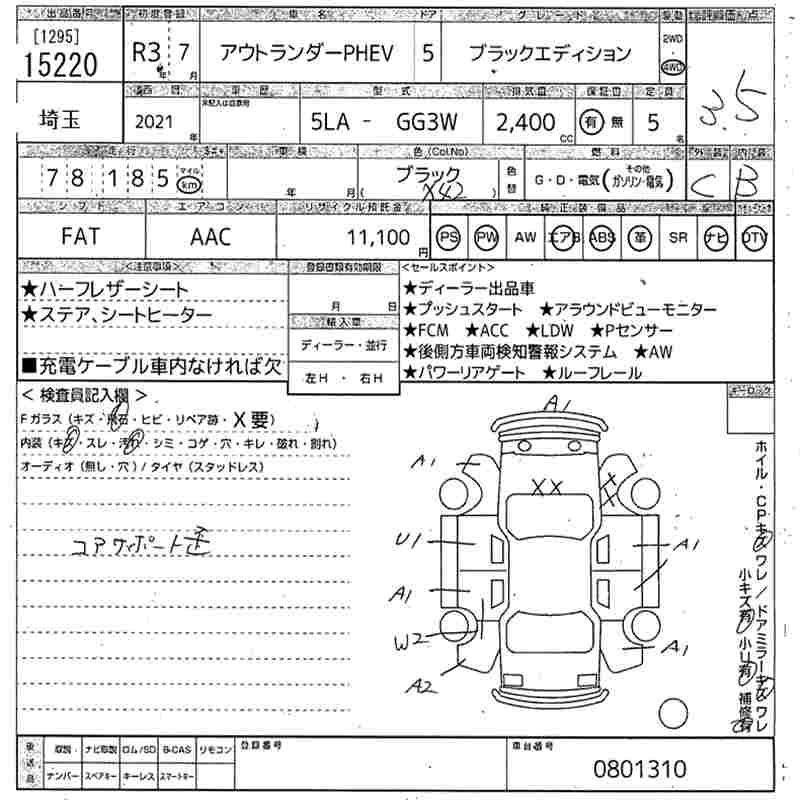 出品番号 初度登録 車名 ドア グレード 駆動 総評価点
[1295]
15220 R3年 7月 アウトランダーPHEV 5 ブラックエディション 2WD 4WD 3.5
車歴 型式 排気量 保証書 定員
未記入は自家用
埼玉 2021年 5LA - GG3W 2,400CC 有 無 5名
走行 車検 色(Col.No) 燃料 外装 内装
78185 マイル km 年 月 ブラック (X42) 色替 G・D・電気(その他 ガソリン・電気) C B
シフト エアコン リサイクル預託金 純正装備品
FAT AAC 11,100円 PS PW AW エアB ABS 革 SR ナビ DTV
<注意事項> 登録書類有効期限 <セールスポイント>
★ハーフレザーシート
★ステア、シートヒーター
■充電ケーブル車内なければ欠
月 日
輸入車
ディーラー・並行
左H ・ 右H
★ディーラー出品車
★プッシュスタート ★アラウンドビューモニター
★FCM ★ACC ★LDW ★Pセンサー
★後側方車両検知警報システム ★AW
★パワーリアゲート ★ルーフレール
<検査員記入欄> キーロック
Fガラス(キズ・飛石・ヒビ・リペア跡・X要)
内装(キズ・スレ・汚れ・シミ・コゲ・穴・キレ・破れ・割れ)
オーディオ(無し・穴)/タイヤ(スタッドレス)
コアサポート歪
A1
A1
XX
XX
U1
A1
A1
W2
A1
A2
ホイル・CPキズワレ/ドアミラーキズワレ
小キズ有 小U有 補修有
後送品 取説・ ナビ取説 ロム/SD B-CAS リモコン 登録番号 車台番号
ナンバー スペアキー キーレス スマートキー 0801310